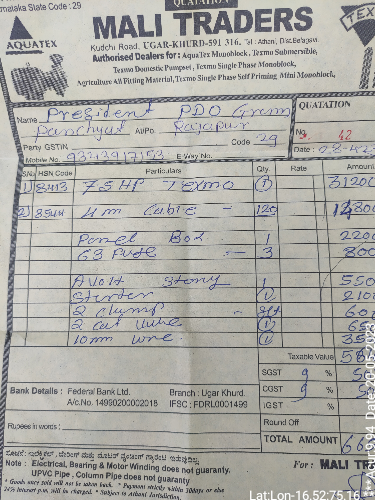 rnataka State Code : 29
QUATATION
MALI TRADERS
AQUATEX
TEX
Kudchi Road, UGAR-KHURD-591 316. Tal : Athani, Dist.Belagavi.
Authorised Dealers for : AquaTex Monoblock, Texmo Submersible,
Texmo Domestic Pumpset, Texmo Single Phase Monoblock,
Agriculture All Fitting Material, Texmo Single Phase Self Priming Mini Monoblock,
Name President PDO Gram
Panchyat At/Po. Rajapur
QUATATION
Party GSTIN Code 29
No. 42
Mobile No. E-Way No.
Date :
SNo HSN Code Particulars Qty. Rate Amount
1) 8413 7.5 HP Texmo 1 31200
2) 8544 4 m Cable - 120
Panel Box 1 2200
63 Fuse - 3 800
1 550
Starter 1 210
2 clump - set 60
2 cut wire 1 65
10mm wire 1 35
Taxable Value
SGST 9 %
CGST 9 %
IGST %
Round Off
TOTAL AMOUNT
Bank Details : Federal Bank Ltd. Branch : Ugar Khurd.
A/c.No. 14990200002018 IFSC : FDRL0001499
Rupees in words :
Note : Electrical, Bearing & Motor Winding does not guaranty.
UPVC Pipe , Column Pipe does not guaranty.
* Goods once sold will not be taken back. * Payment strictly within 30days or the
24% interest p.m. will be charged. * Subject to Athani Jurisdiction.
For : MALI TR
Lat:Lon-16.52:75.16